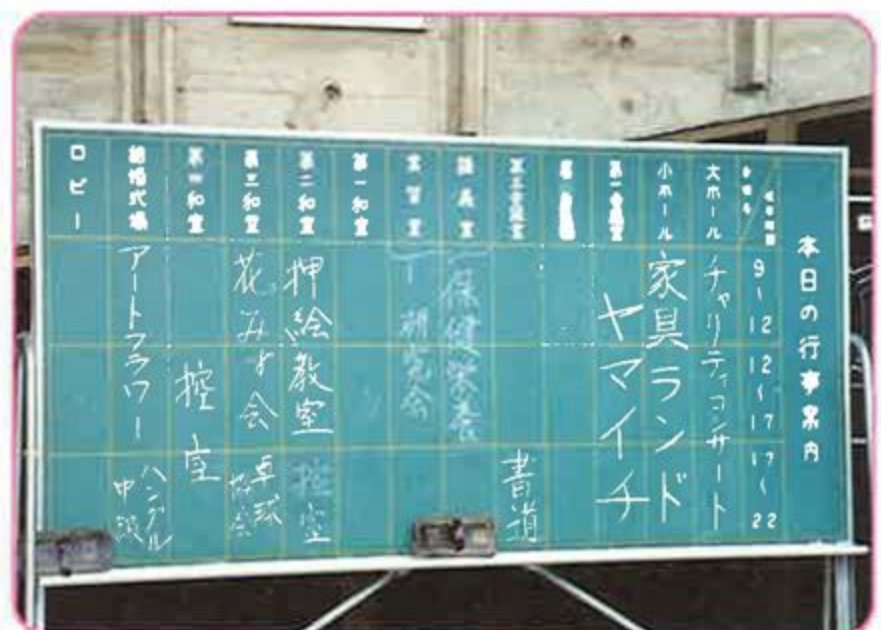 本日の行事案内
9〜12
12〜17
17〜22
大ホール
チャリティコンサート
小ホール
家具ランド
ヤマイチ
書道
保健栄養
研究会
第一和室
第二和室
押絵教室
控室
第三和室
花みす会
卓球
協会
控室
結婚式場
アートフラワー
ハングル
中級
ロビー